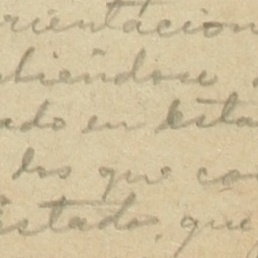 rientacion
tiéndose
ado en Esta
los que co
Estado, que